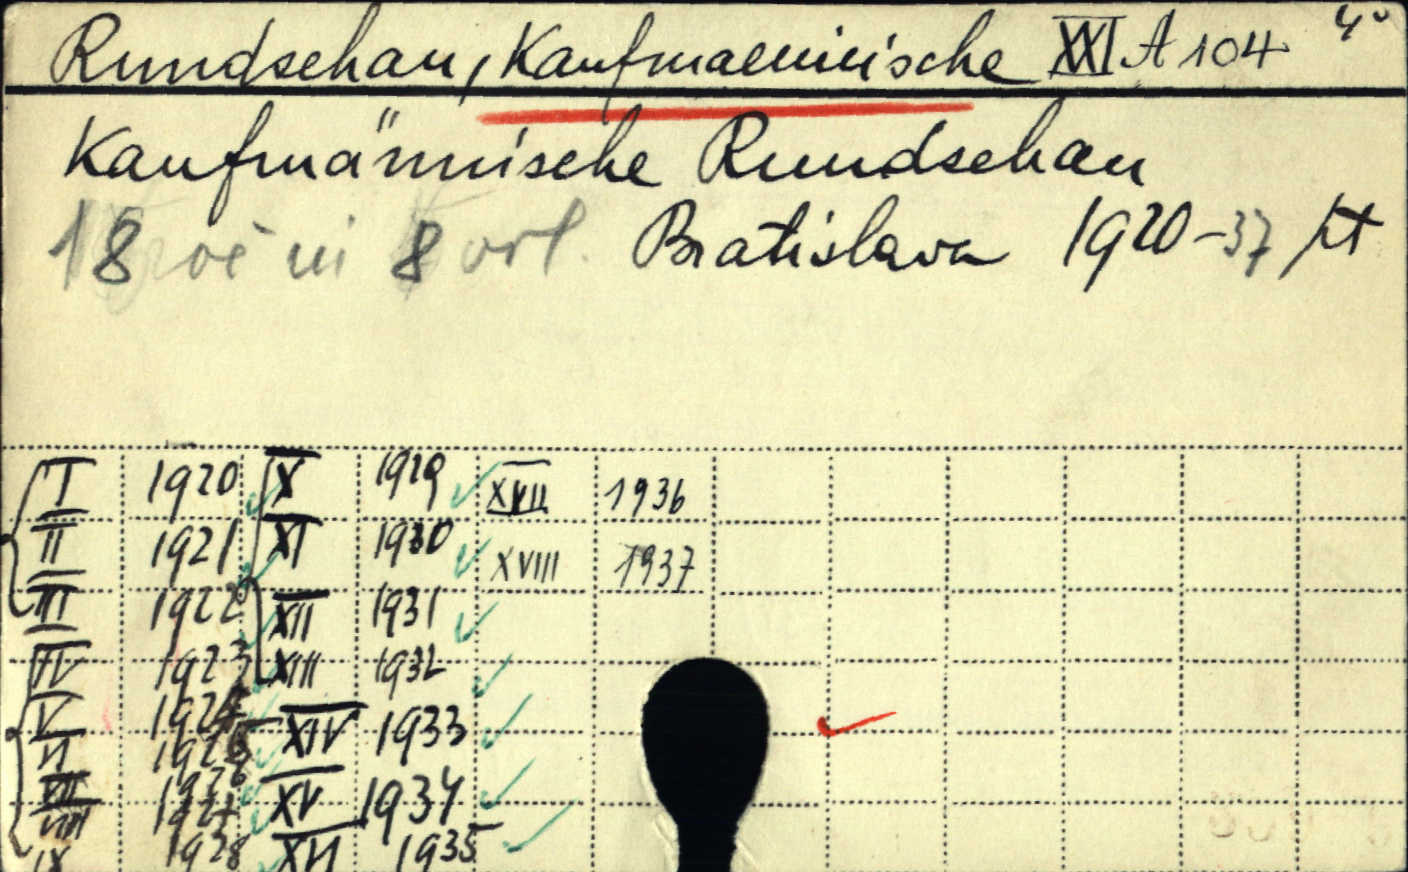 Rundschau, Kaufmaennische XXI A 104 4°
Kaufmännische Rundschau
18 roč in 8 vol. Bratislava 1920-37
I 1920 X 1929 XVII 1936
II 1921 XI 1930 XVIII 1937
III 1922 XII 1931
IV 1923 XIII 1932
V 1924 XIV 1933
VI 1925
VII 1926 XV 1934
VIII 1927
IX 1928 XVI 1935